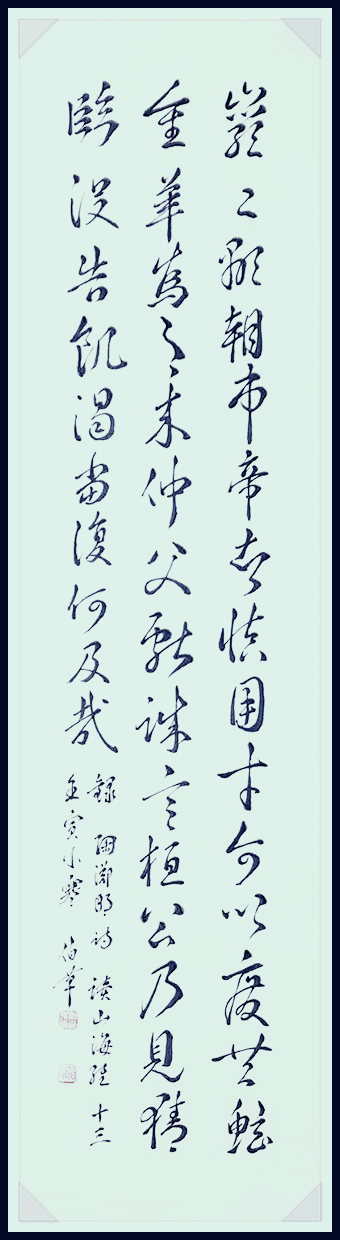 巖々顯朝市帝者慎用才何以廢共鯀
重華為之来仲父献誠言桓公乃見猜
臨没告飢渴當復何及哉
録陶淵明詩讀山海經十三
壬寅小寒